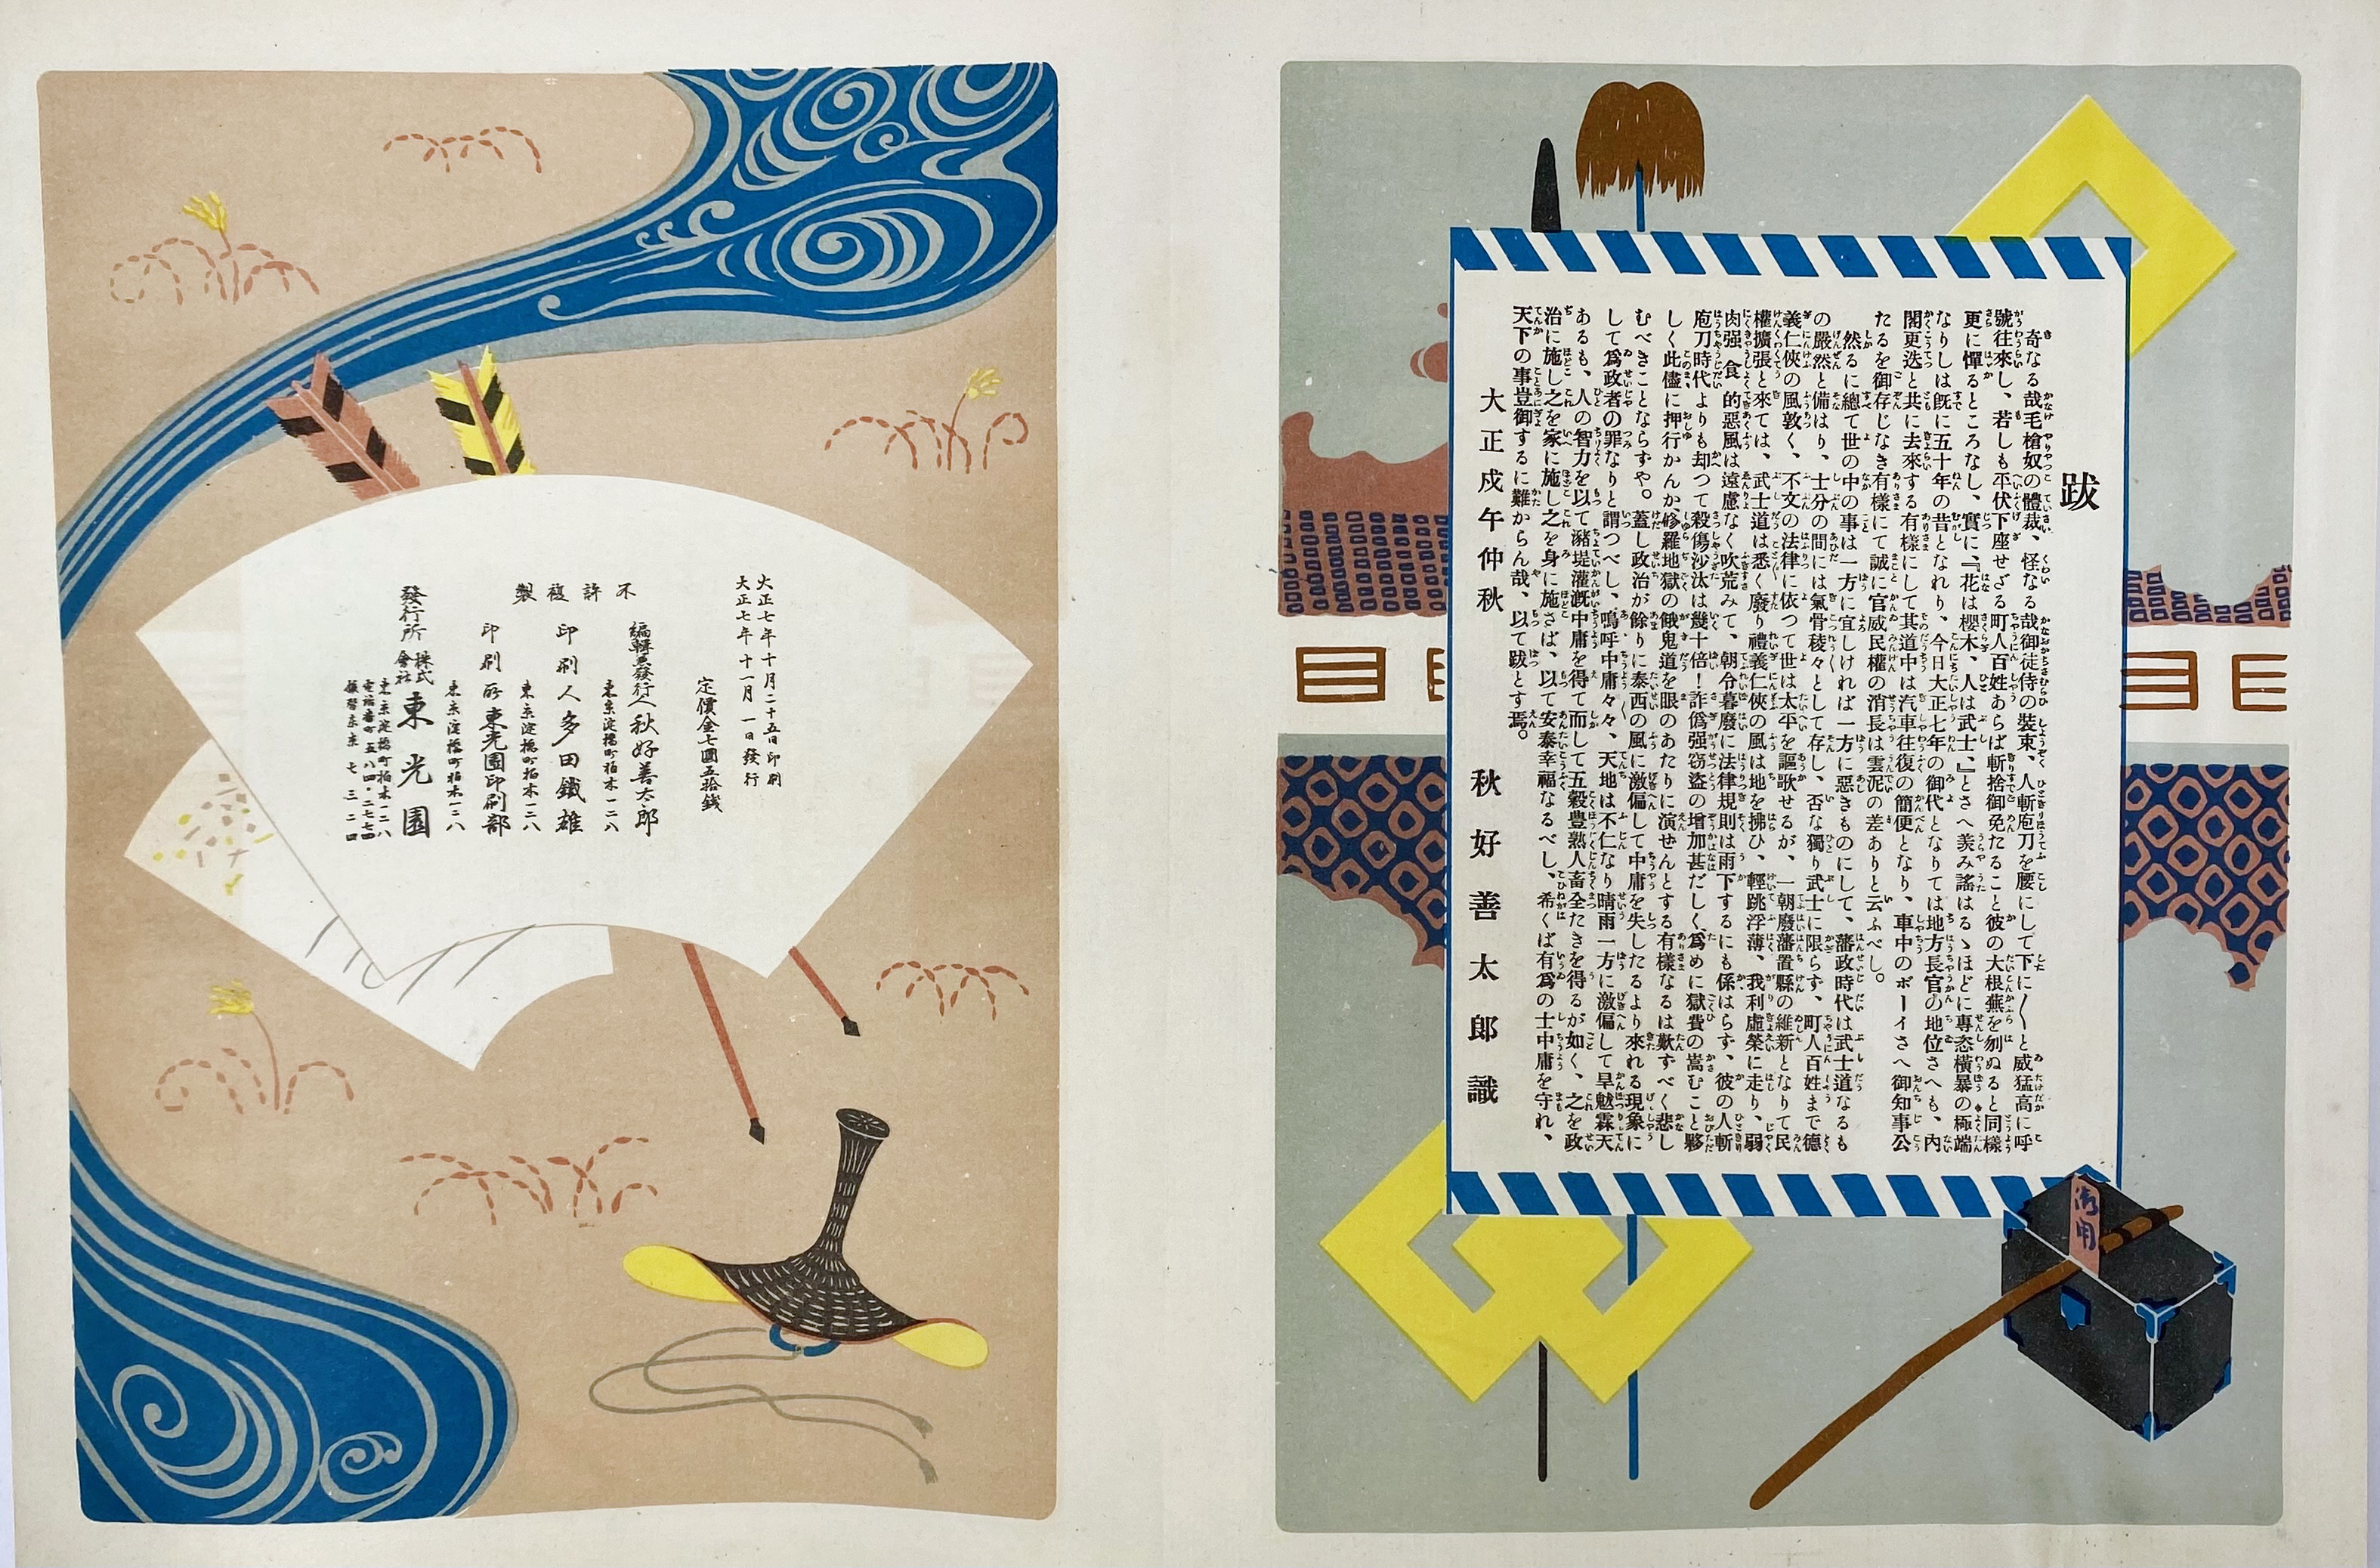 跋
奇なる哉毛槍奴の體裁、怪なる哉御徒侍の裝束、人斬庖刀を腰にして下に〳〵と威猛高に呼
號往來し、若しも平伏下座せざる町人百姓あらば斬捨御免たること彼の大根蕪を刎ぬると同樣
更に憚るところなし、實に『花は櫻木、人は武士』とさへ羨み謠はるゝほどに專恣橫暴の極端
なりしは旣に五十年の昔となれり、今日大正七年の御代となりては地方長官の地位さへも、內
閣更迭と共に去來する有樣にして其道中は汽車往復の簡便となり、車中のボーイさへ御知事公
たるを御存じなき有樣にて誠に官威民權の消長は雲泥の差ありと云ふべし。
然るに總て世の中の事は一方に宜しければ一方に惡きものにして、藩政時代は武士道なるも
の嚴然と備はり、士分の間には氣骨稜々として存し、否な獨り武士に限らず、町人百姓まで德
義仁俠の風敦く、不文の法律に依つて世は太平を謳歌せるが、一朝廢藩置縣の維新となりて民
權擴張と來ては、武士道は悉く廢り禮義仁俠の風は地を拂ひ、輕跳浮薄、我利虛榮に走り、弱
肉强食的惡風は遠慮なく吹荒みて、朝令暮廢に法律規則は雨下するにも係はらず、彼の人斬
庖刀時代よりも却つて殺傷沙汰は幾十倍！詐僞强窃盜の增加甚だしく爲めに獄費の嵩むこと夥
しく此儘に押行かんか、修羅地獄の餓鬼道を眼のあたりに演ぜんとする有樣なるは歎ずべく悲し
むべきことならずや。蓋し政治が餘りに泰西の風に激偏して中庸を失したるより來れる現象に
して爲政者の罪なりと謂つべし、嗚呼中庸々々、天地は不仁なり晴雨一方に激偏して旱魃霖天
あるも、人の智力を以て瀦堤灌漑中庸を得て而して五穀豊熟人畜全たきを得るが如く、之を政
治に施し之を家に施し之を身に施さば、以て安泰幸福なるべし、希くば有爲の士中庸を守れ、
天下の事豈御するに難からん哉、以て跋とす焉。
大正戍午仲秋
秋好善太郎識
御用
大正七年十月二十五日印刷
大正七年十一月一日發行
定價金七圓五拾錢
不許複製
編輯兼發行人 秋好善太郎
東京淀橋町柏木一二八
印刷人 多田鐵雄
東京淀橋町柏木一二八
印刷所 東光園印刷部
東京淀橋町柏木一二八
發行所 株式會社 東光園
東京淀橋町柏木一二八
電話番町五八四・二七七四
振替東京七三二四